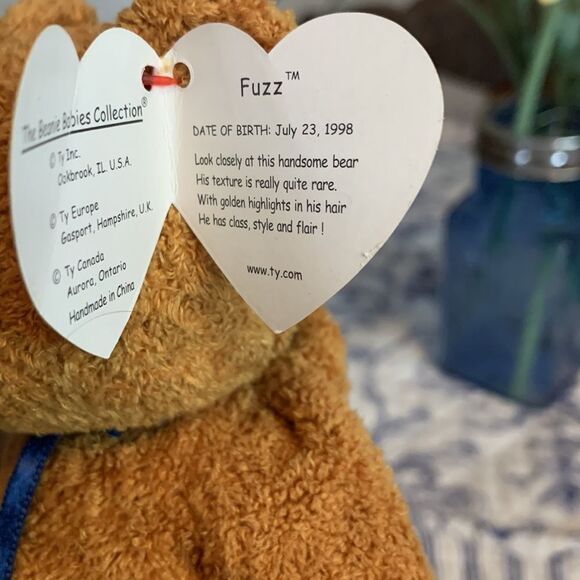 The Beanie Babies Collection®
© Ty Inc.
Oakbrook, IL. U.S.A.
© Ty Europe
Gasport, Hampshire, U.K.
© Ty Canada
Aurora, Ontario
Handmade in China
Fuzz™
DATE OF BIRTH: July 23, 1998
Look closely at this handsome bear
His texture is really quite rare.
With golden highlights in his hair
He has class, style and flair !
www.ty.com